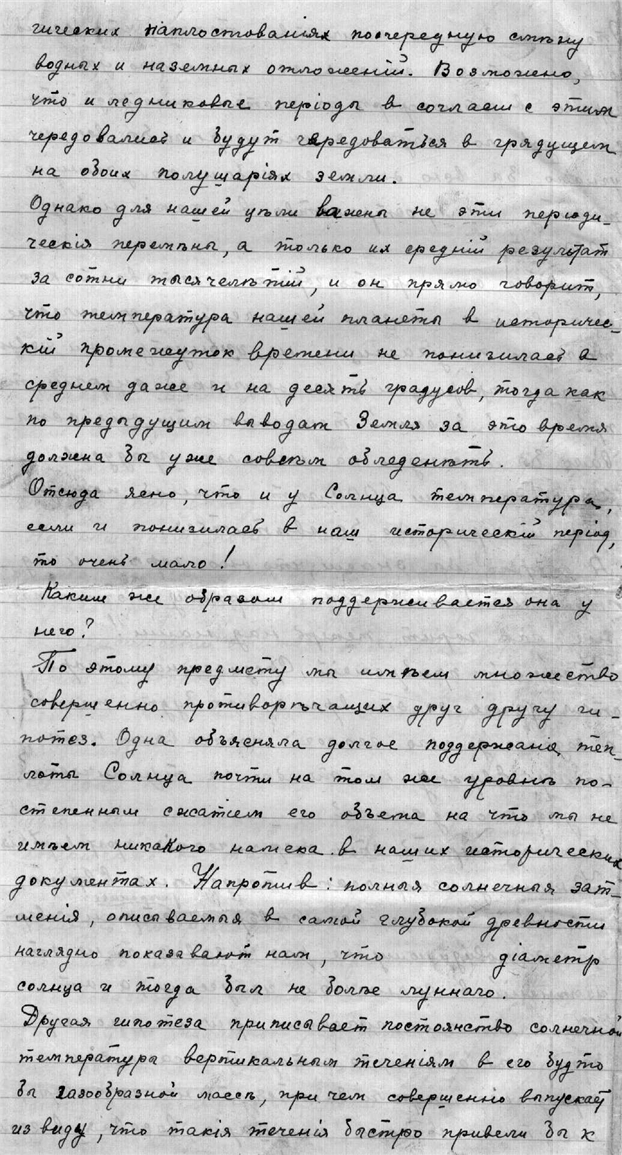 гических напластованіях поочередную смѣну
водных и наземных отложеній. Возможно,
что и ледниковые періоды в согласіи с этим
чередовались и будут чередоваться в грядущем
на обоих полушаріях земли.
Однако для нашей цѣли важны не эти періоди-
ческія перемѣны, а только их средній результат
за сотни тысячелѣтій, и он прямо говорит,
что температура нашей планеты в историчес-
кій промежуток времени не понизилась в
среднем даже и на десять градусов, тогда как
по предыдущим выводам Земля за это время
должна бы уже совсѣм обледенѣть.
Отсюда ясно, что и у Солнца температура,
если и понизилась в наш историческій період,
то очень мало!
Каким же образом поддерживается она у
него?
По этому предмету мы имѣем множество
совершенно противорѣчащих друг другу ги-
потез. Одна объясняла долгое поддержаніе теп-
лоты Солнца почти на том же уровнѣ по-
степенным сжатіем его объема на что мы не
имѣем никакого намека в наших исторических
документах. Напротив: полныя солнечныя зат-
менія, описываемыя в самой глубокой древности
наглядно показывают нам, что діаметр
солнца и тогда был не болѣе луннаго.
Другая гипотеза приписывает постоянство солнечной
температуры вертикальным теченіям в его будто
бы газообразной массѣ, при чем совершенно выпускает
из виду, что такія теченія быстро привели бы к